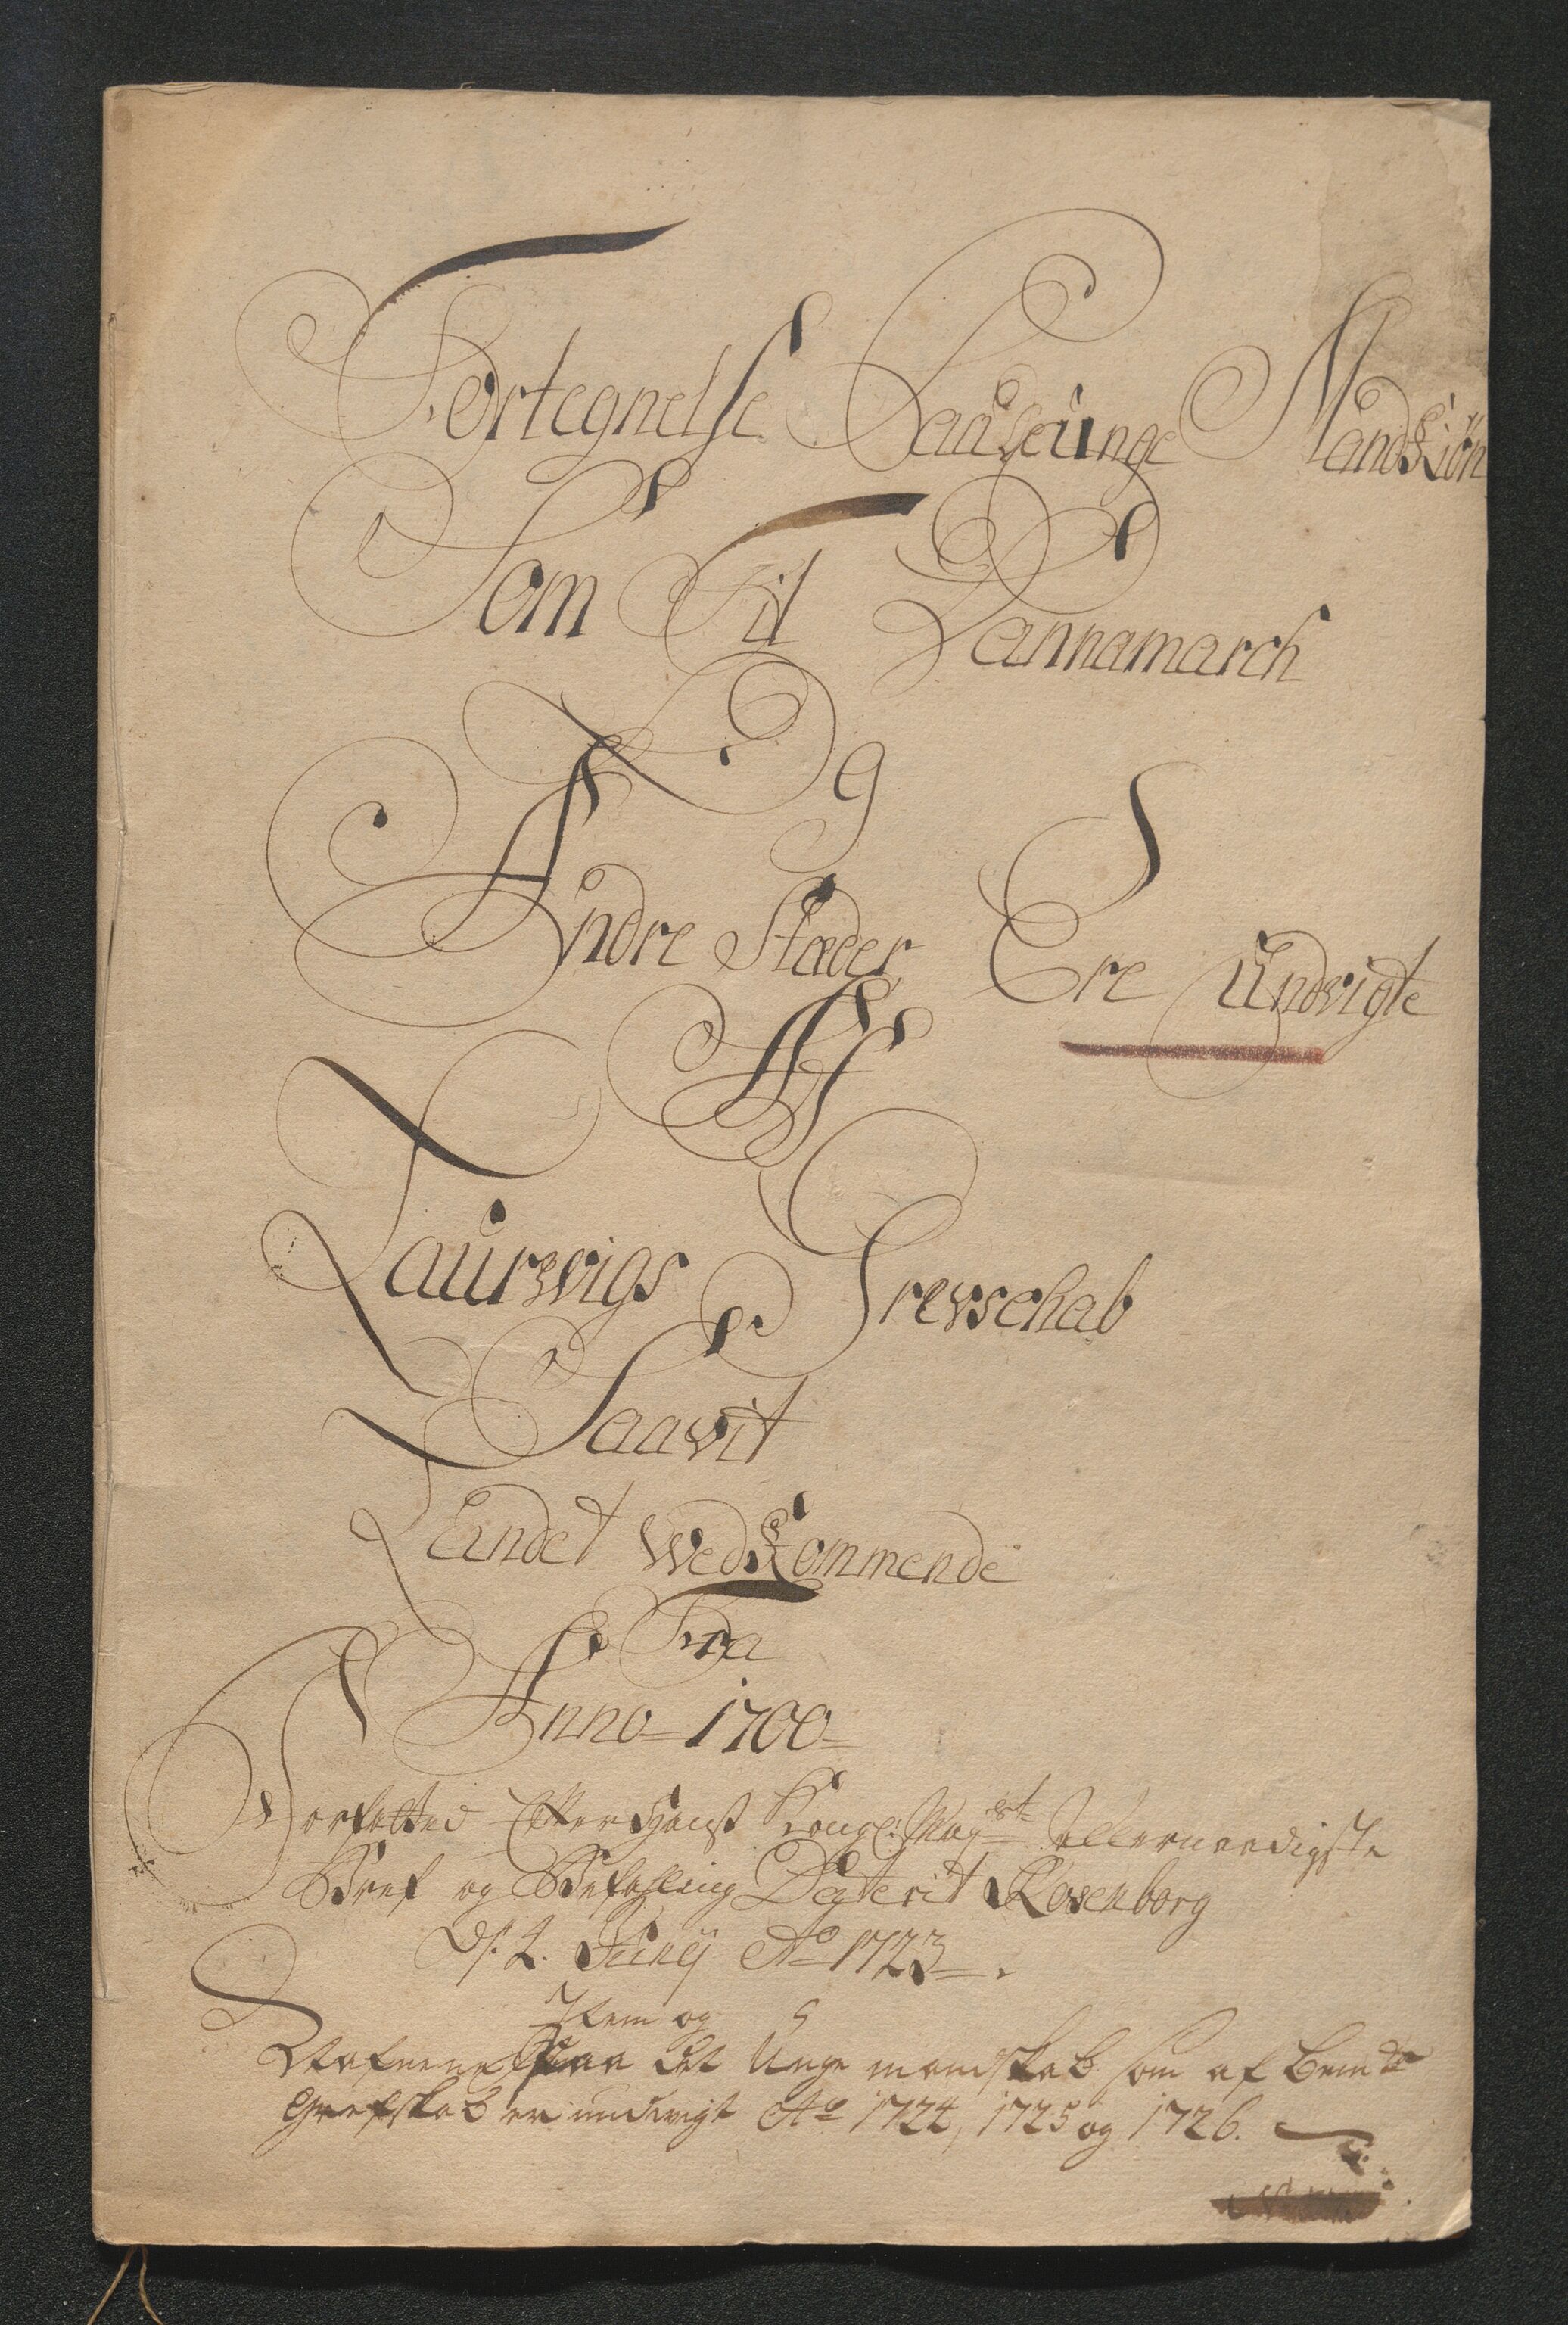 Fortegnelse Paa Unge Mandkiön
Som Til Dannamarch
Og
Andre Stæder Ere Undvigte
Af
Laurwigs Grevschab
Saavit
Landet wedkommende
Fra
Anno 1700
Forfatted Efter Hans Kongl: May:st Allernaadigste
Bref og Befahling Dateret Rosenborg
d. 2. Junij Ao 1723.
Item og
Nafnene paa det Unge mandskab som af bemte
Grefskab er undvigt Ao 1724, 1725 og 1726.